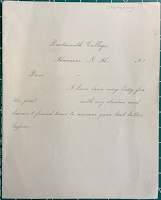 Dartmouth College,
Hanover N. H. 188
Dear
I have been very busy for
the past with my studies and
haven't found time to answer your last letter
before.